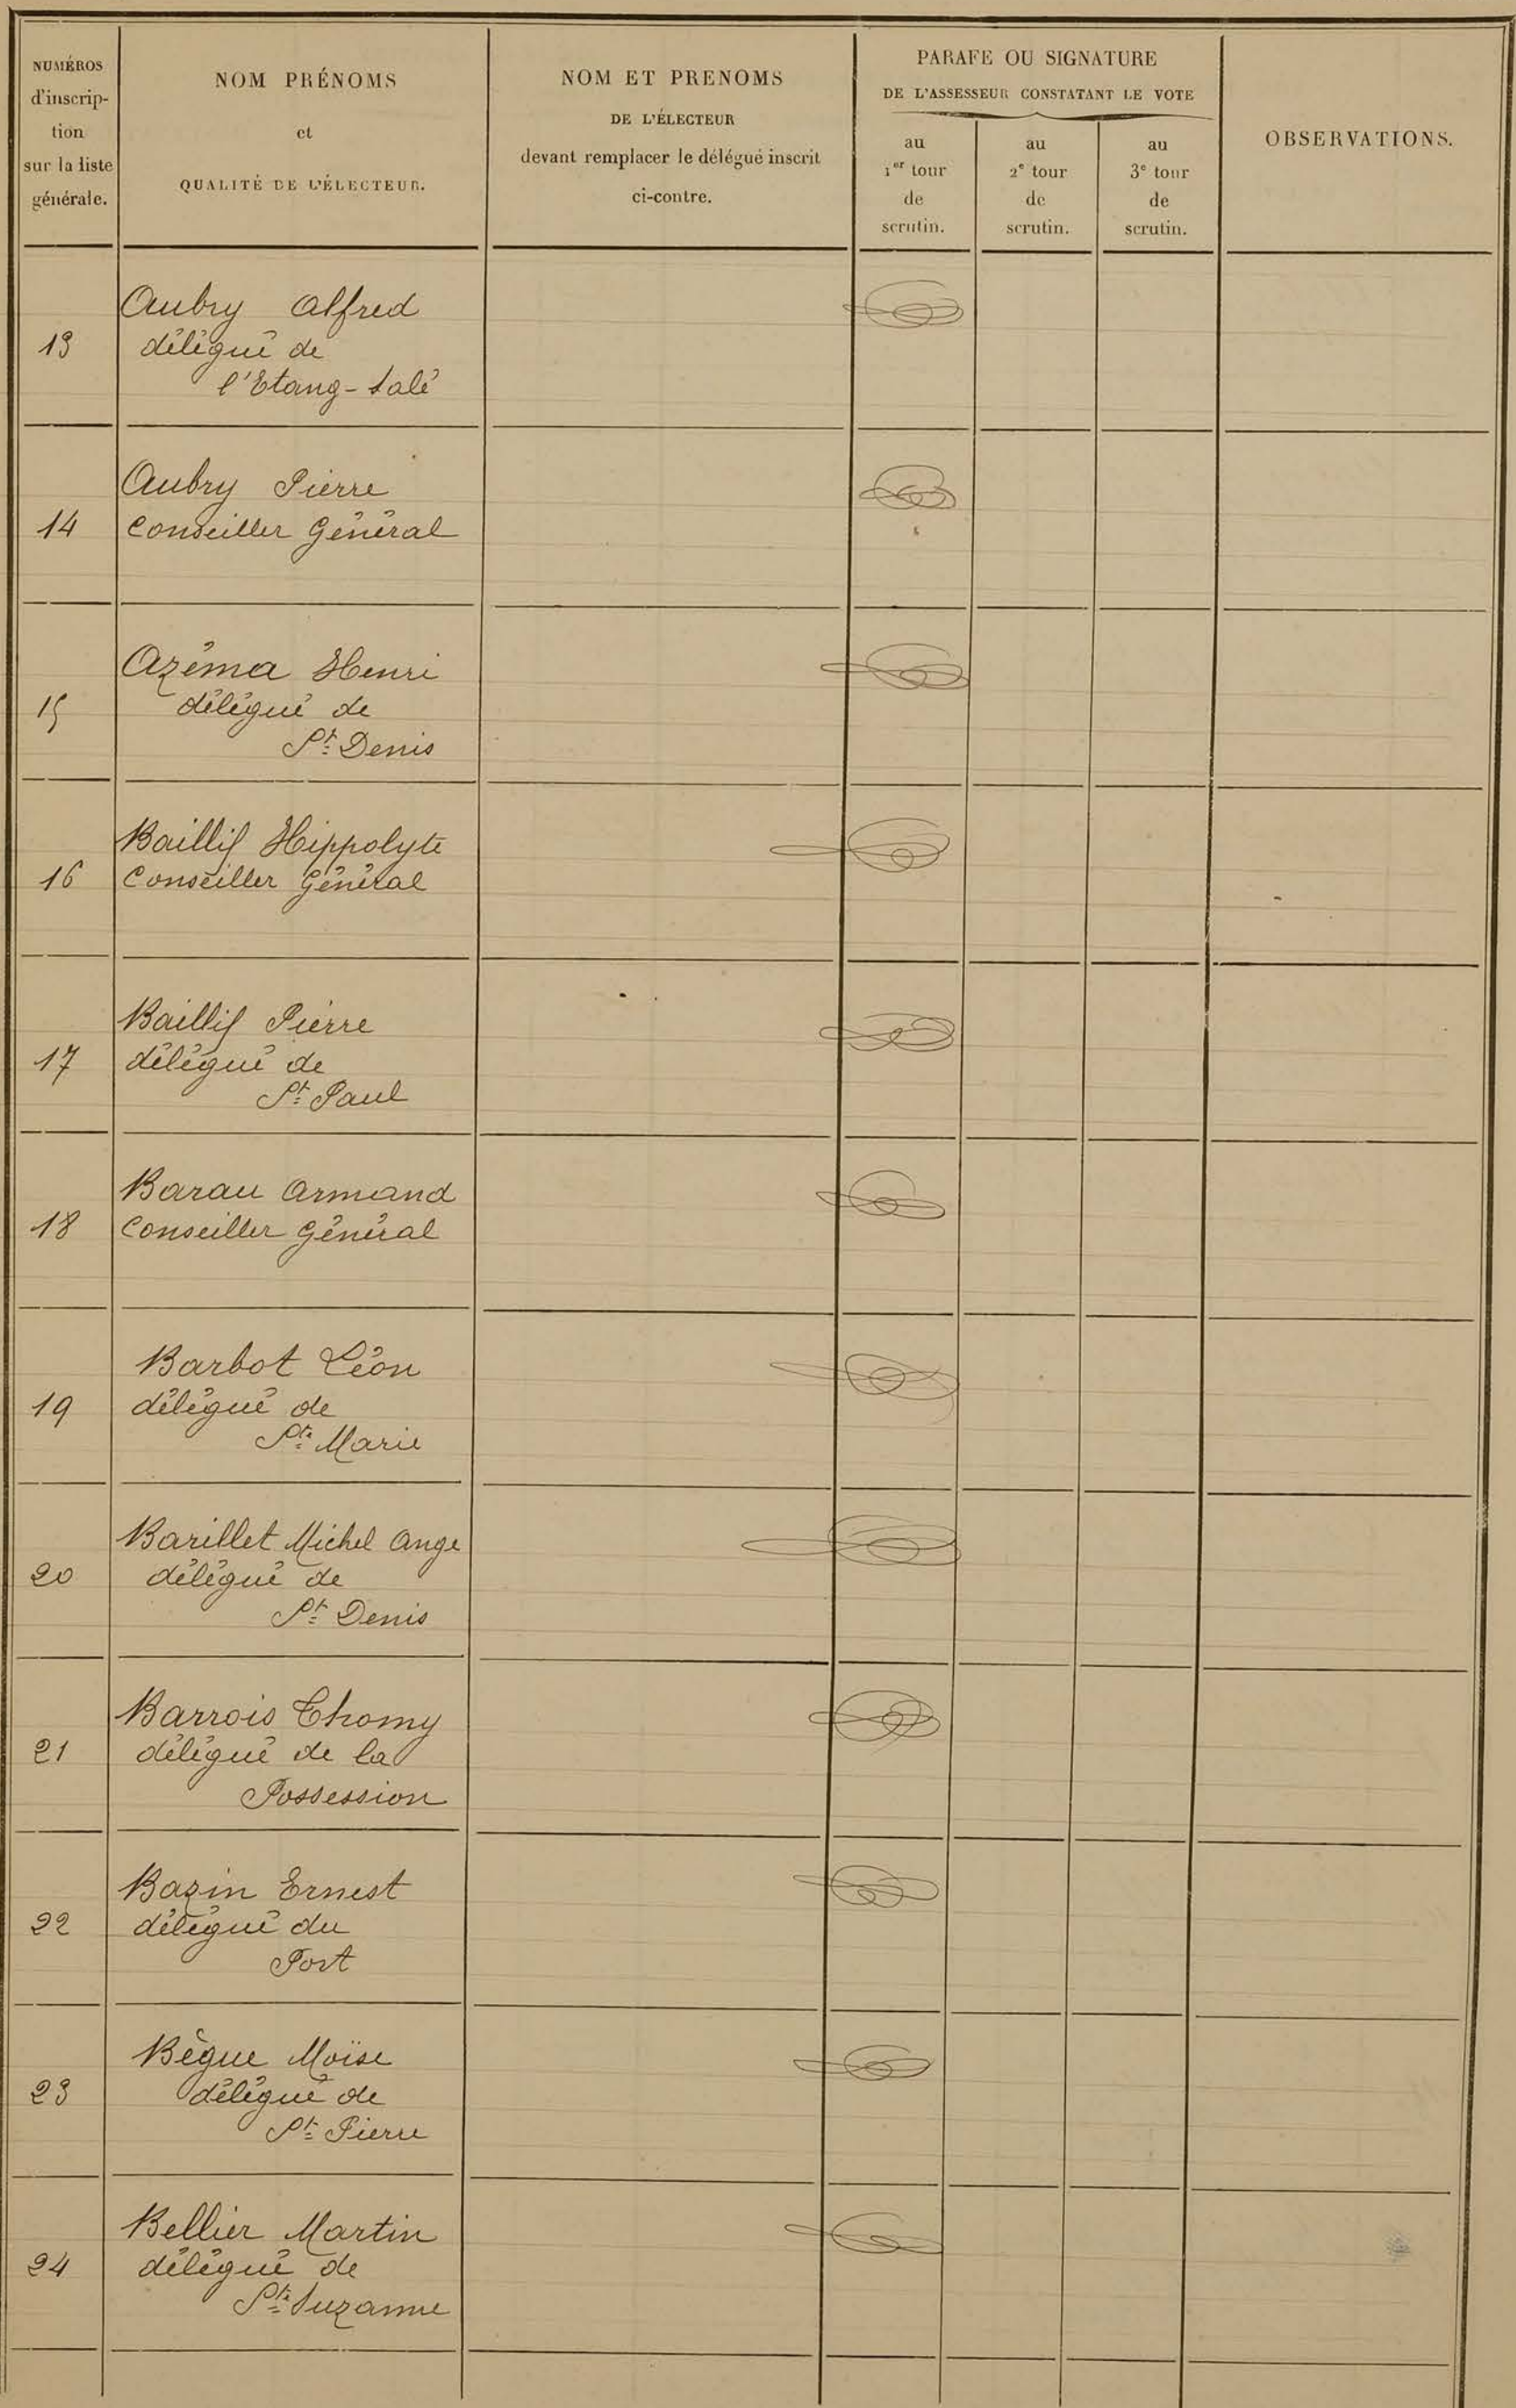 NUMÉROS
d'inscrip-
tion
sur la liste
générale.
NOM PRÉNOMS
et
QUALITÉ DE L'ÉLECTEUR.
NOM ET PRENOMS
DE L'ÉLECTEUR
devant remplacer le délégué inscrit
ci-contre.
PARAFE OU SIGNATURE
DE L'ASSESSEUR CONSTATANT LE VOTE
au
1er tour
de
scrutin.
au
2e tour
de
scrutin.
au
3e tour
de
scrutin.
OBSERVATIONS.
Aubry Alfred
13 délégué de
l'Etang-Salé
Aubry Pierre
14 Conseiller Général
Azéma Henri
15 délégué de
St Denis
Baillif Hippolyte
16 Conseiller Général
Baillif Pierre
17 délégué de
St Paul
Barau Armand
18 Conseiller Général
Barbot Léon
19 délégué de
Ste Marie
Barillet Michel Ange
20 délégué de
St Denis
Barrois Thomy
21 délégué de la
Possession
Bazin Ernest
22 délégué du
Port
Bègue Moïse
23 délégué de
St Pierre
Bellier Martin
24 délégué de
Ste Suzanne